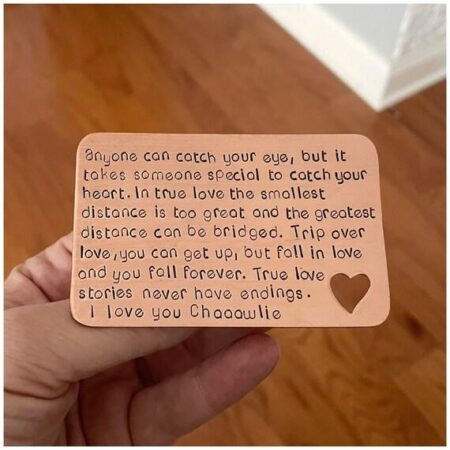 anyone can catch your eye, but it
takes someone special to catch your
heart. In true love the smallest
distance is too great and the greatest
distance can be bridged. Trip over
love, you can get up, but fall in love
and you fall forever. True love
stories never have endings.
I love you Chaaawlie